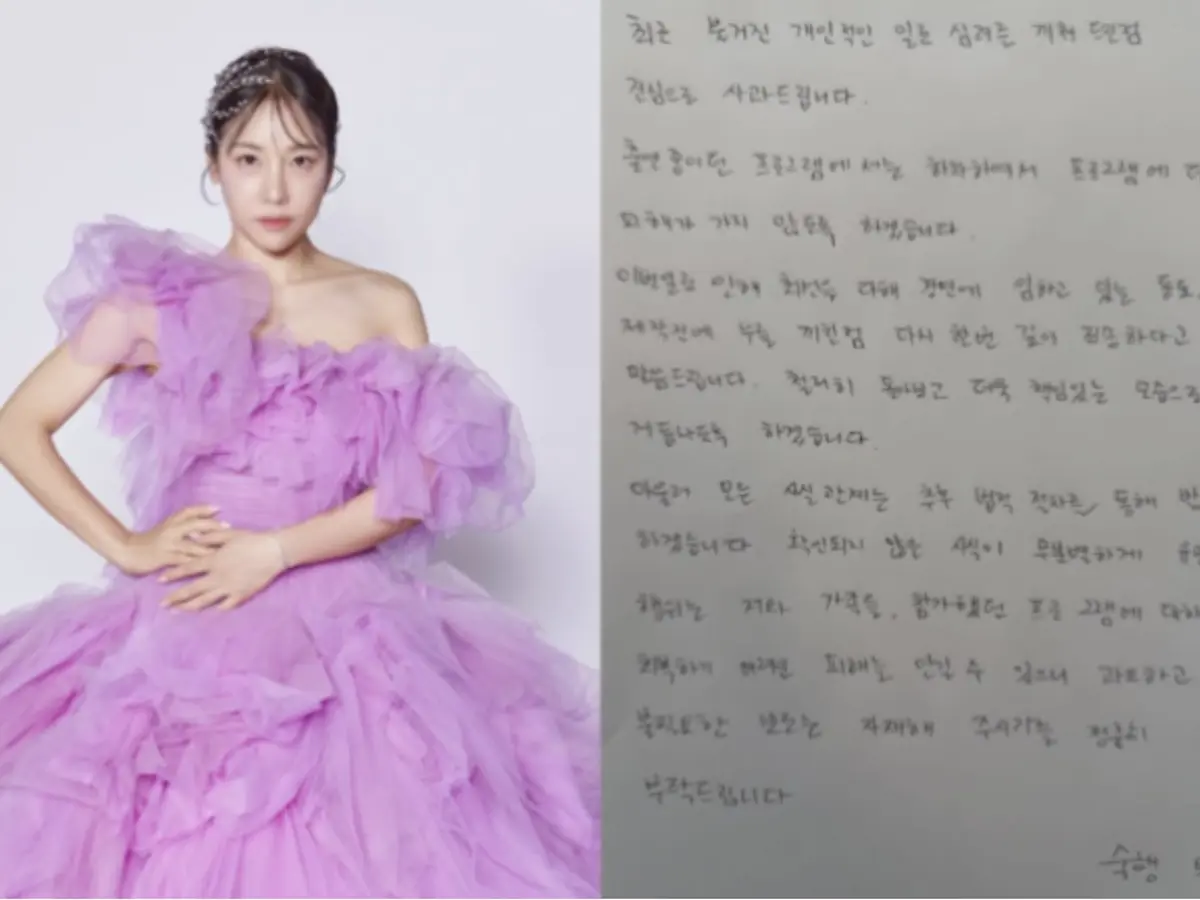 최근 불거진 개인적인 일로 심려를 끼쳐 드린점
진심으로 사과드립니다.
출연 중이던 프로그램에서는 하차하여서 프로그램에 더
피해가 가지 않도록 하겠습니다.
이번일로 인해 최선을 다해 경연에 임하고 있는 동료,
제작진에 누를 끼친점 다시 한번 깊이 죄송하다고
말씀드립니다. 철저히 돌아보고 더욱 책임있는 모습으로
거듭나도록 하겠습니다.
아울러 모든 사실관계는 추후 법적 절차를 통해
하겠습니다 확인되지 않은 사실이 무분별하게
행위는 저와 가족들, 참가했던 프로그램에 대해
회복하기 어려운 피해를 안길 수 있으니 과도하고
불필요한 보도는 자제해 주시기를 정중히
부탁드립니다
숙행